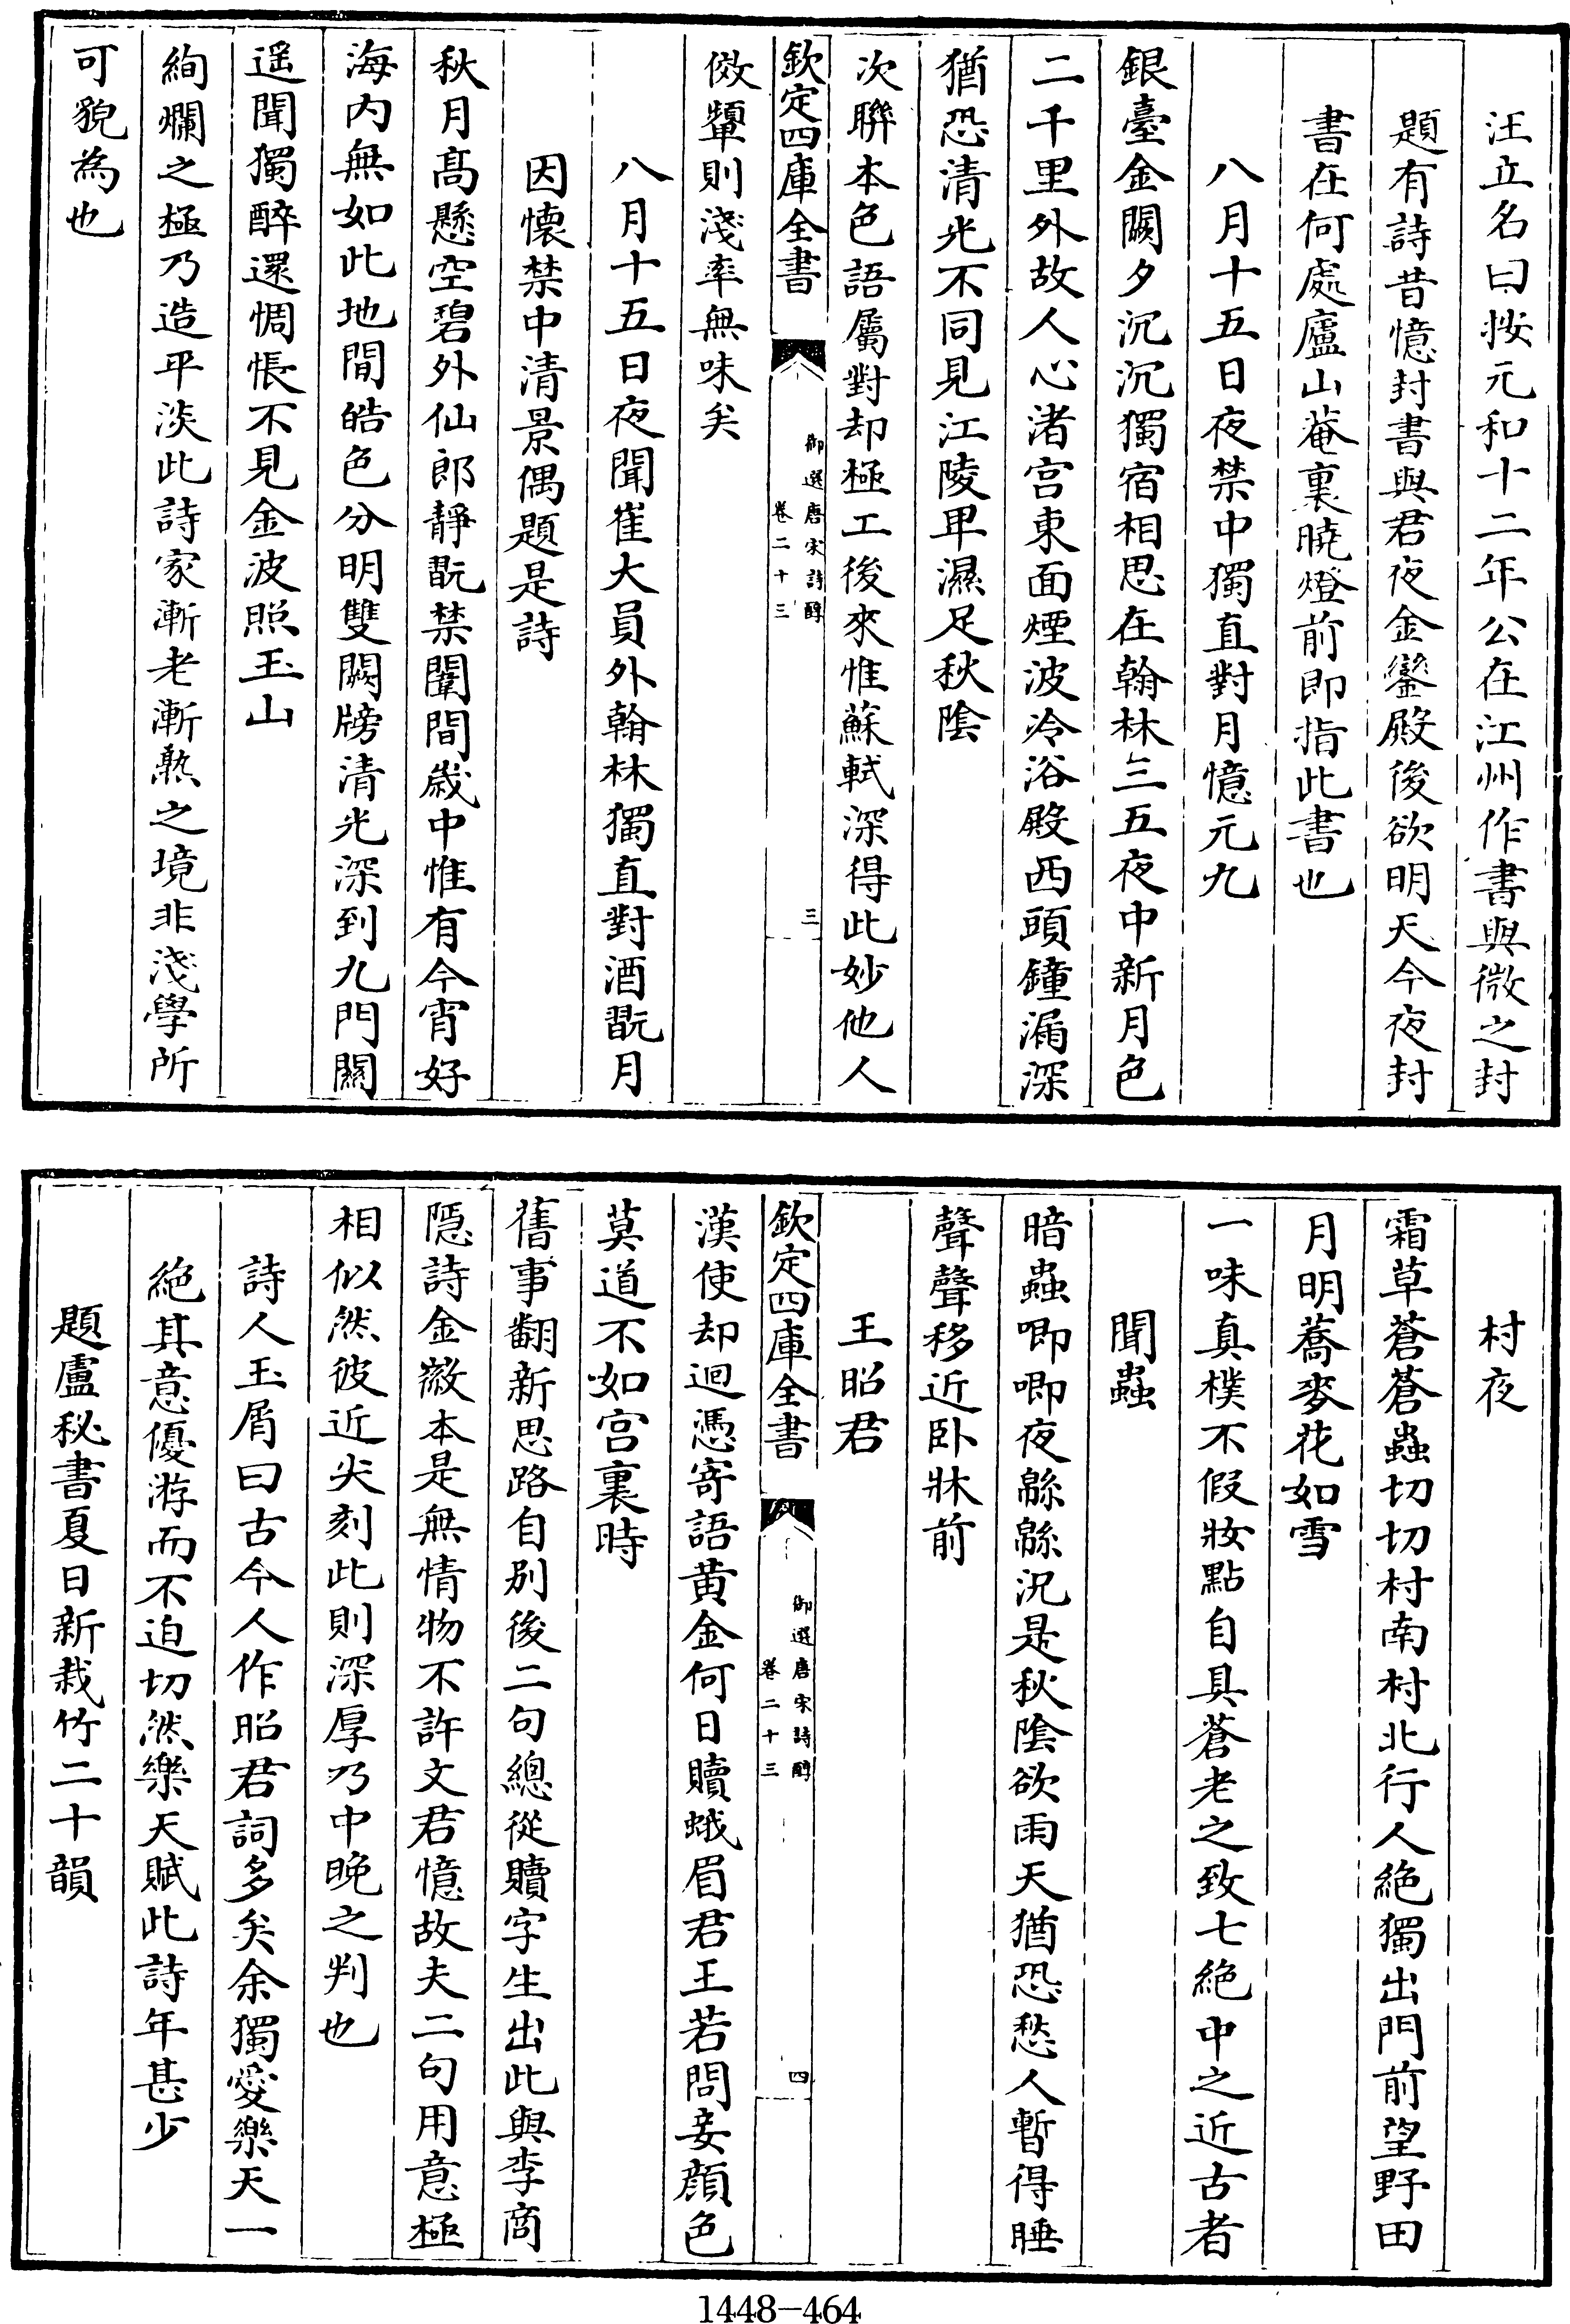 汪立名曰按元和十二年公在江州作書與微之封
題有詩昔憶封書與君夜金鑾殿後欲明天今夜封
書在何處廬山菴裏曉燈前即指此書也
八月十五日夜禁中獨直對月憶元九
銀臺金闕夕沉沉獨宿相思在翰林三五夜中新月色
二千里外故人心渚宫東面煙波冷浴殿西頭鐘漏深
猶恐清光不同見江陵卑濕足秋陰
次聨本色語屬對却極工後來惟蘇軾深得此妙他人
欽定四庫全書
御選唐宋詩醇
卷二十三
三
傚顰則淺率無味矣
八月十五日夜聞崔大員外翰林獨直對酒翫月
因懐禁中清景偶題是詩
秋月髙懸空碧外仙郎靜翫禁闈間歳中惟有今宵好
海内無如此地閒皓色分明雙闕牓清光深到九門關
遥聞獨醉還惆悵不見金波照玉山
絢爛之極乃造平淡此詩家漸老漸熟之境非淺學所
可貌為也
村夜
霜草蒼蒼蟲切切村南村北行人絶獨出門前望野田
月明蕎麥花如雪
一味真樸不假妝點自具蒼老之致七絶中之近古者
聞蟲
暗蟲唧唧夜緜緜况是秋陰欲雨天猶恐愁人暫得睡
聲聲移近卧牀前
王昭君
欽定四庫全書
御選唐宋詩醇
卷二十三
四
漢使却迴憑寄語黄金何日贖蛾眉君王若問妾顔色
莫道不如宫裏時
舊事翻新思路自别後二句總從贖字生出此與李商
隠詩金徽本是無情物不許文君憶故夫二句用意極
相似然彼近尖刻此則深厚乃中晚之判也
詩人玉屑曰古今人作昭君詞多矣余獨愛樂天一
絶其意優游而不迫切然樂天賦此詩年甚少
題盧秘書夏日新栽竹二十韻
1448-464